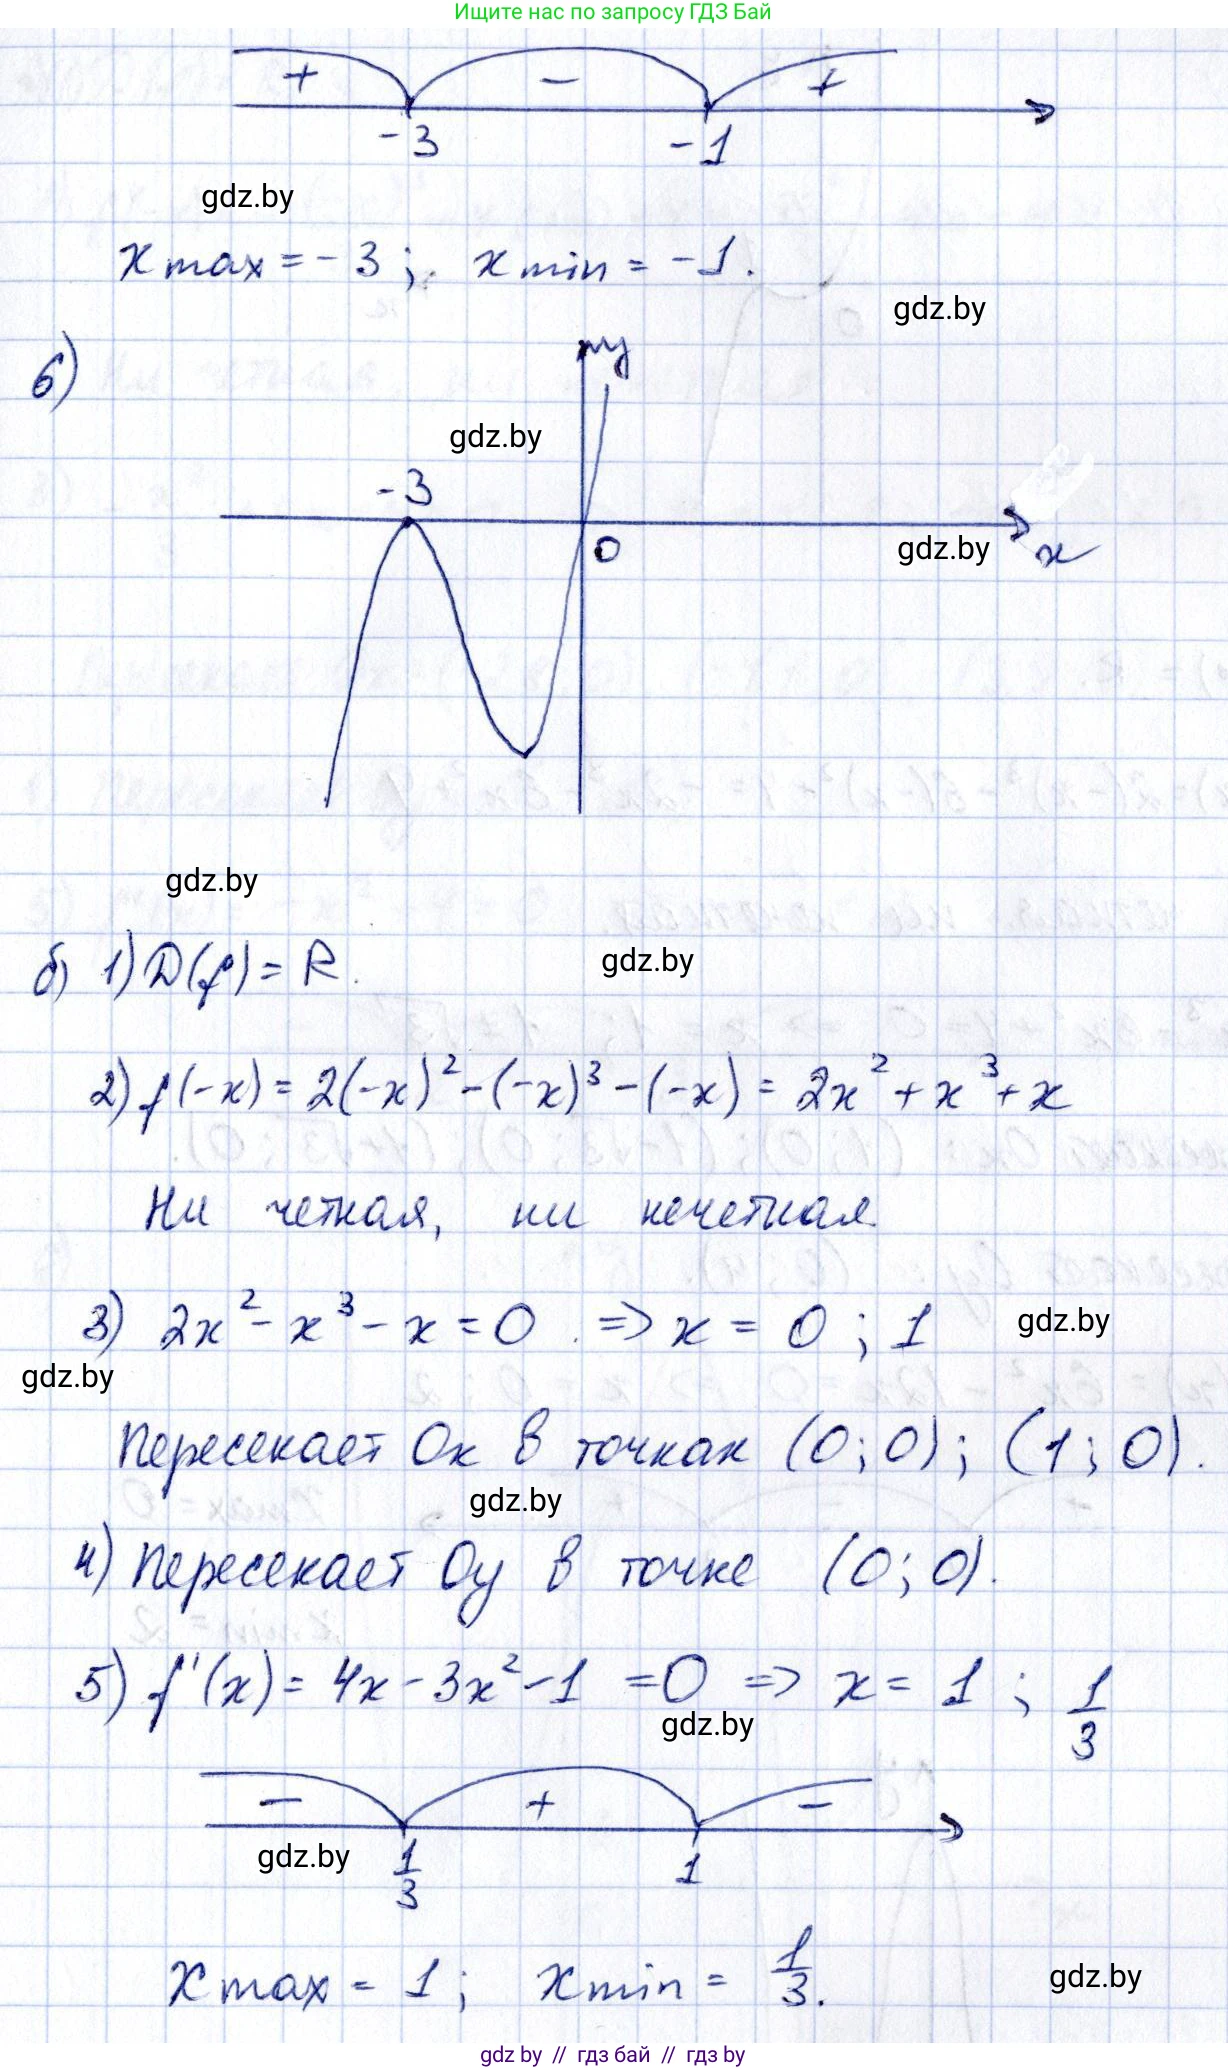 Ищите нас по запросу ГДЗ Бай
+ − +
-3 -1
gdz.by
x max = -3; x min = -1.
gdz.by
6)
y
gdz.by
-3
0
gdz.by
x
gdz.by
б) 1) D(f) = R.
gdz.by
2) f(-x) = 2(-x)² - (-x)³ - (-x) = 2x² + x³ + x
Ни четная, ни нечетная
3) 2x² - x³ - x = 0 => x = 0; 1
gdz.by
gdz.by
Пересекает Ox в точках (0; 0); (1; 0).
gdz.by
4) Пересекает Oy в точке (0; 0).
5) f'(x) = 4x - 3x² - 1 = 0 => x = 1; 1/3
gdz.by
− + −
gdz.by
1/3 1
x max = 1; x min = 1/3.
gdz.by
gdz.by // гдз бай // гдз by